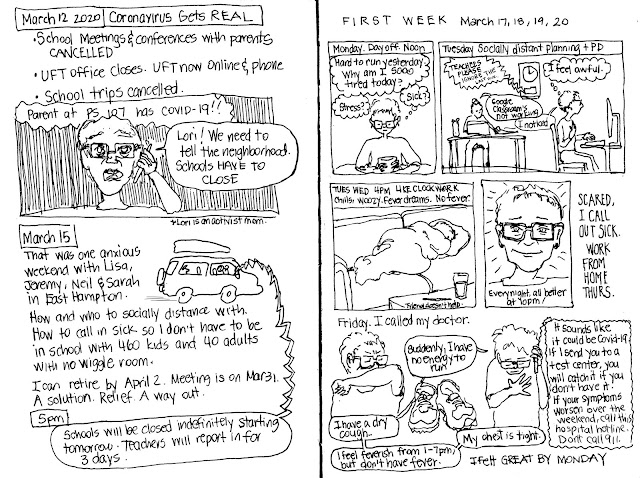 March 12 2020
Coronavirus Gets REAL
• School Meetings & conferences with parents
CANCELLED
• UFT office closes. UFT now online & phone
• School trips cancelled.
Parent at PS 107 has COVID-19!!
Lori! We need to
tell the neighborhood.
Schools HAVE TO
CLOSE
*Lori is an activist mom.
March 15
That was one anxious
weekend with Lisa,
Jeremy, Neil & Sarah
in East Hampton.
How and who to socially distance with.
How to call in sick so I don't have to be
in school with 460 kids and 40 adults
with no wiggle room.
I can retire by April 2. Meeting is on Mar 31.
A solution. Relief. A way out.
5pm
Schools will be closed indefinitely starting
tomorrow. Teachers will report in for
3 days.
FIRST WEEK March 17, 18, 19, 20
Monday. Day off. Noon
Hard to run yesterday
Why am I SOOO
tired today?
Stress?
Sick?
Tuesday Socially distant planning + PD
TEACHERS
PLEASE
IGNORE THE
I feel awful.
Google
Classroom's
not working
I noticed
TUES WED 4PM LIKE CLOCKWORK
Chills, woozy. Fever dreams. No fever.
Tylenol doesn't help.
Every night all better
at 10pm!
SCARED,
I CALL
OUT SICK.
WORK
FROM
HOME
THURS.
Friday. I called my doctor.
I have a dry
cough.
Suddenly, I have
no energy to
run!
My chest is tight.
I feel feverish from 1-7pm,
but don't have fever.
It sounds like
it could be Covid-19
If I send you to a
test center, you
will catch it if you
don't have it.
If your symptoms
worsen over the
weekend, call this
hospital hotline.
Don't call 911.
I felt GREAT BY MONDAY